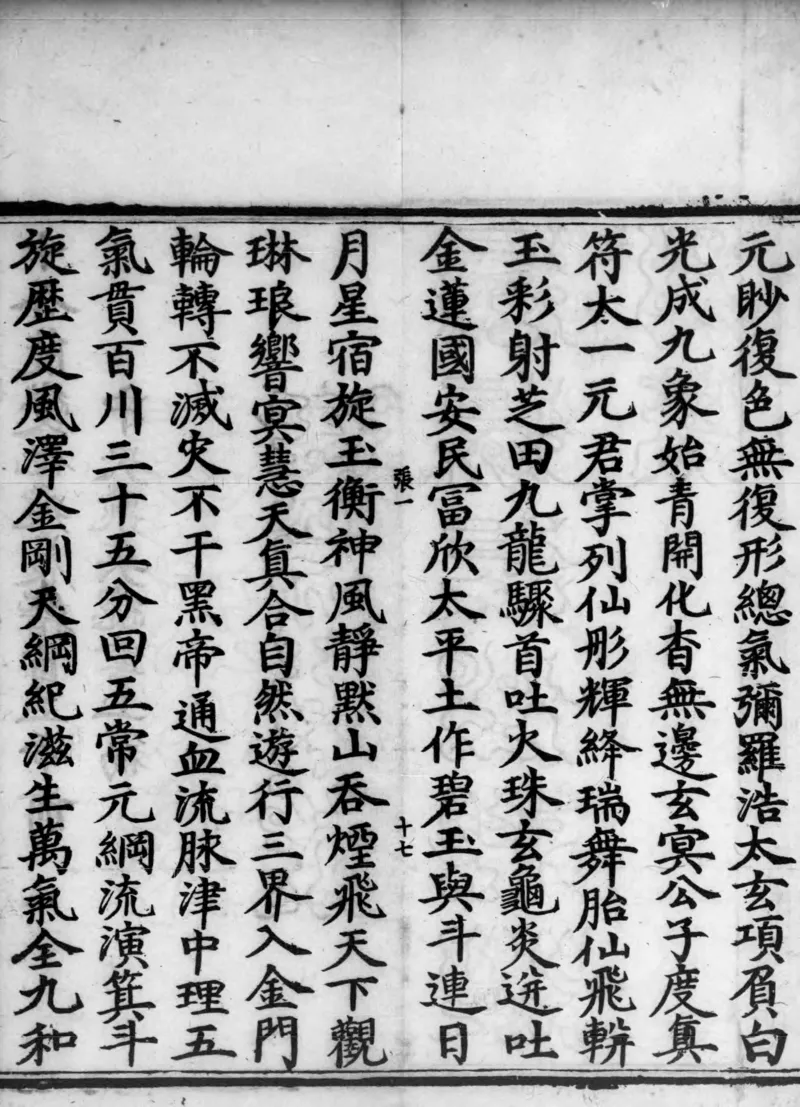 元眇復色無復形總氣彌羅浩太玄項負白
光成九象始青開化杳無邊玄冥公子度真
符太一元君掌列仙彤輝絳瑞舞胎仙飛輧
玉彩射芝田九龍驟首吐火珠玄龜炎逬吐
金蓮國安民冨欣太平土作碧玉與斗連日
張一
十七
月星宿旋玉衡神風靜默山吞煙飛天下觀
琳琅響冥慧天真合自然遊行三界入金門
輪轉不滅灾不干黑帝通血流脉津中理五
氣貫百川三十五分回五常元綱流演箕斗
旋歷度風澤金剛天綱紀滋生萬氣全九和